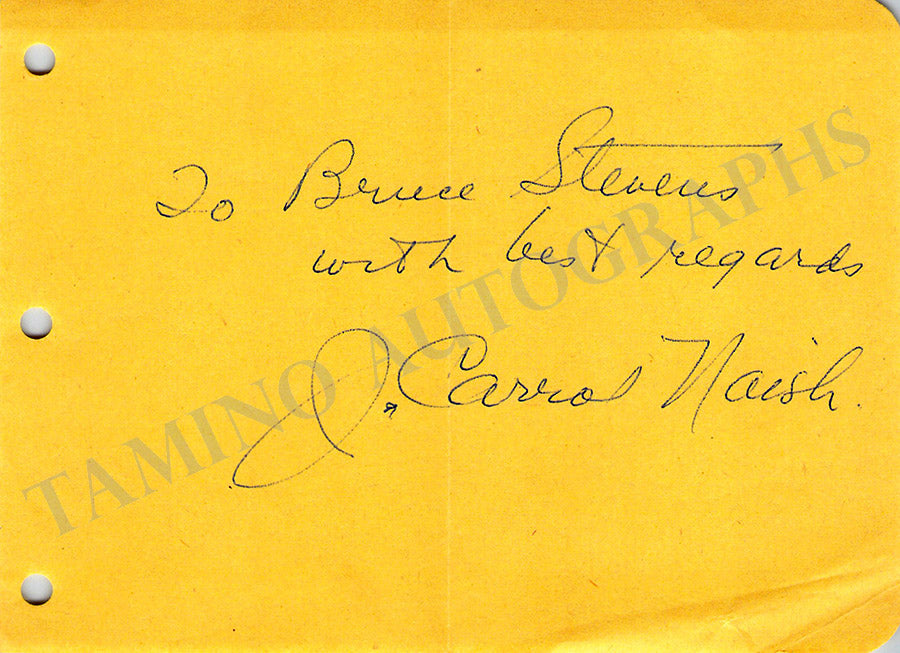 To Bruce Stevens
with best regards
J. Carrol Naish.
TAMINO AUTOGRAPHS